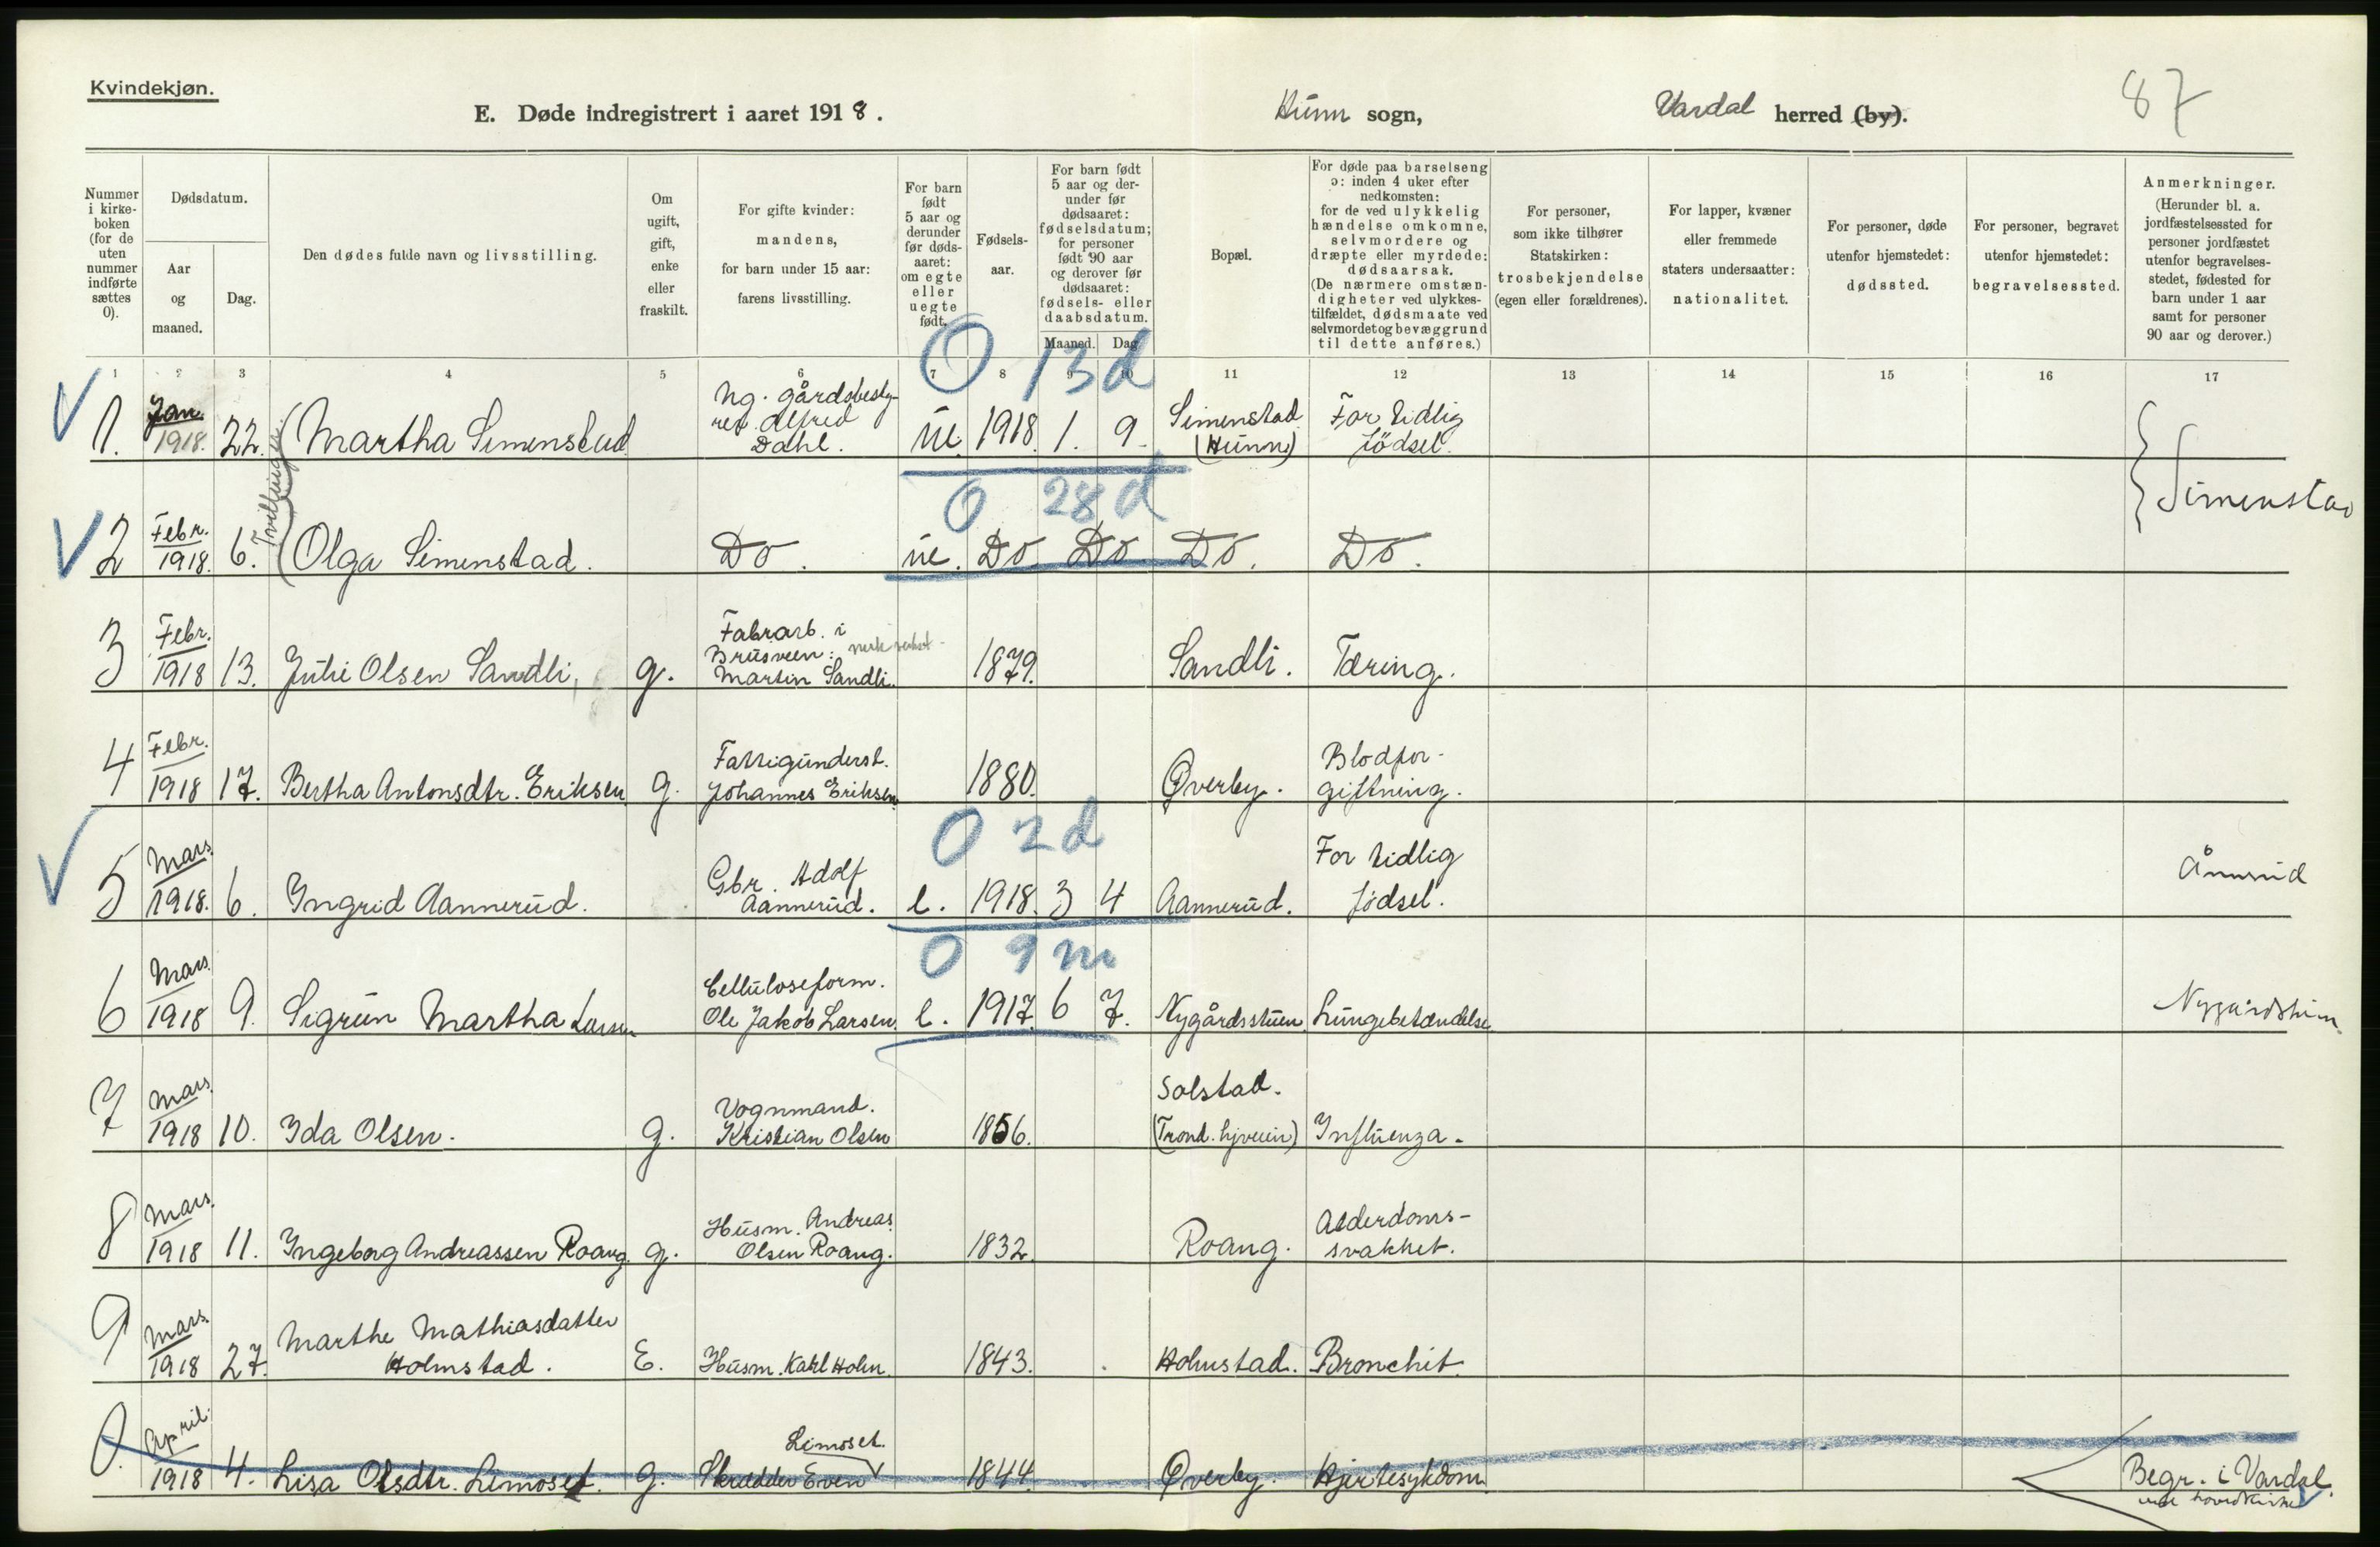 Kvindekjøn.
E. Døde indregistrert i aaret 1918. Hunn sogn, Vardal herred (by).
87
Nummer i kirkeboken (for de uten nummer indførte sættes 0).
Dødsdatum.
Aar og maaned.
Dag.
Den dødes fulde navn og livsstilling.
Om ugift, gift, enke eller fraskilt.
For gifte kvinder: mandens, for barn under 15 aar: farens livsstilling.
For barn født 5 aar og derunder før dødsaaret: om egte eller uegte født.
Fødselsaar.
For barn født 5 aar og derunder før dødsaaret: fødselsdatum; for personer født 90 aar og derover før dødsaaret: fødsels- eller daabsdatum.
Maaned. Dag
Bopæl.
For døde paa barselseng ɔ: inden 4 uker efter nedkomsten: for de ved ulykkelig hændelse omkomne, selvmordere og dræpte eller myrdede: dødsaarsak. (De nærmere omstændigheter ved ulykkestilfældet, dødsmaate ved selvmordet og bevæggrund til dette anføres.)
For personer, som ikke tilhører Statskirken: trosbekjendelse (egen eller forældrenes).
For lapper, kvæner eller fremmede staters undersaatter: nationalitet.
For personer, døde utenfor hjemstedet: dødssted.
For personer, begravet utenfor hjemstedet: begravelsessted.
Anmerkninger. (Herunder bl. a. jordfæstelsessted for personer jordfæstet utenfor begravelsesstedet, fødested for barn under 1 aar samt for personer 90 aar og derover.)
1 2 3 4 5 6 7 8 9 10 11 12 13 14 15 16 17
0 13 d
1. Jan. 1918. 22. Martha Simenstad Ng. gårdsbestyrer Alfred Dahl. ue. 1918. 1. 9. Simenstad (Hunn) For tidlig fødsel.
Tvillinger
Simenstad
0 28 d
2 Febr. 1918. 6. Olga Simenstad. Do. ue. Do. Do Do. Do.
3 Febr. 1918 13. Julie Olsen Sandli, g. Fabrarb. i Brusveen: Martin Sandli. 1879. Sandli. Tæring.
4 Febr. 1918 17. Bertha Antonsdtr. Eriksen g. Fattigunderst. Johannes Eriksen. 1880. Øverby. Blodforgiftning.
0 2 d
5 Mars. 1918. 6. Ingrid Aannerud. Gbr. Adolf Aannerud. e. 1918. 3 4 Aannerud. For tidlig fødsel. Ånnerud
0 9 m
6 Mars. 1918 9. Sigrun Martha Larsen Celluloseform. Ole Jakob Larsen. e. 1917. 6 7. Nygårdsstuen. Lungebetændelse
7 Mars. 1918 10. Ida Olsen. g. Vognmand. Kristian Olsen 1856. Solstad. Influenza.
8 Mars. 1918 11. Ingeborg Andreassen Roang. g. Husm. Andreas Olsen Roang. 1832. Roang. Alderdoms-svakhet.
9 Mars. 1918 27. Marthe Mathiasdatter Holmstad. E. Husm. Karl Holm. 1843. Holmstad. Bronchit.
0. April. 1918 4. Lisa Olsdtr. Limoset. g. Skrædder Even Limoset. 1844. Øverby. Hjertesykdom. Begr. i Vardal. ved hovedkirke